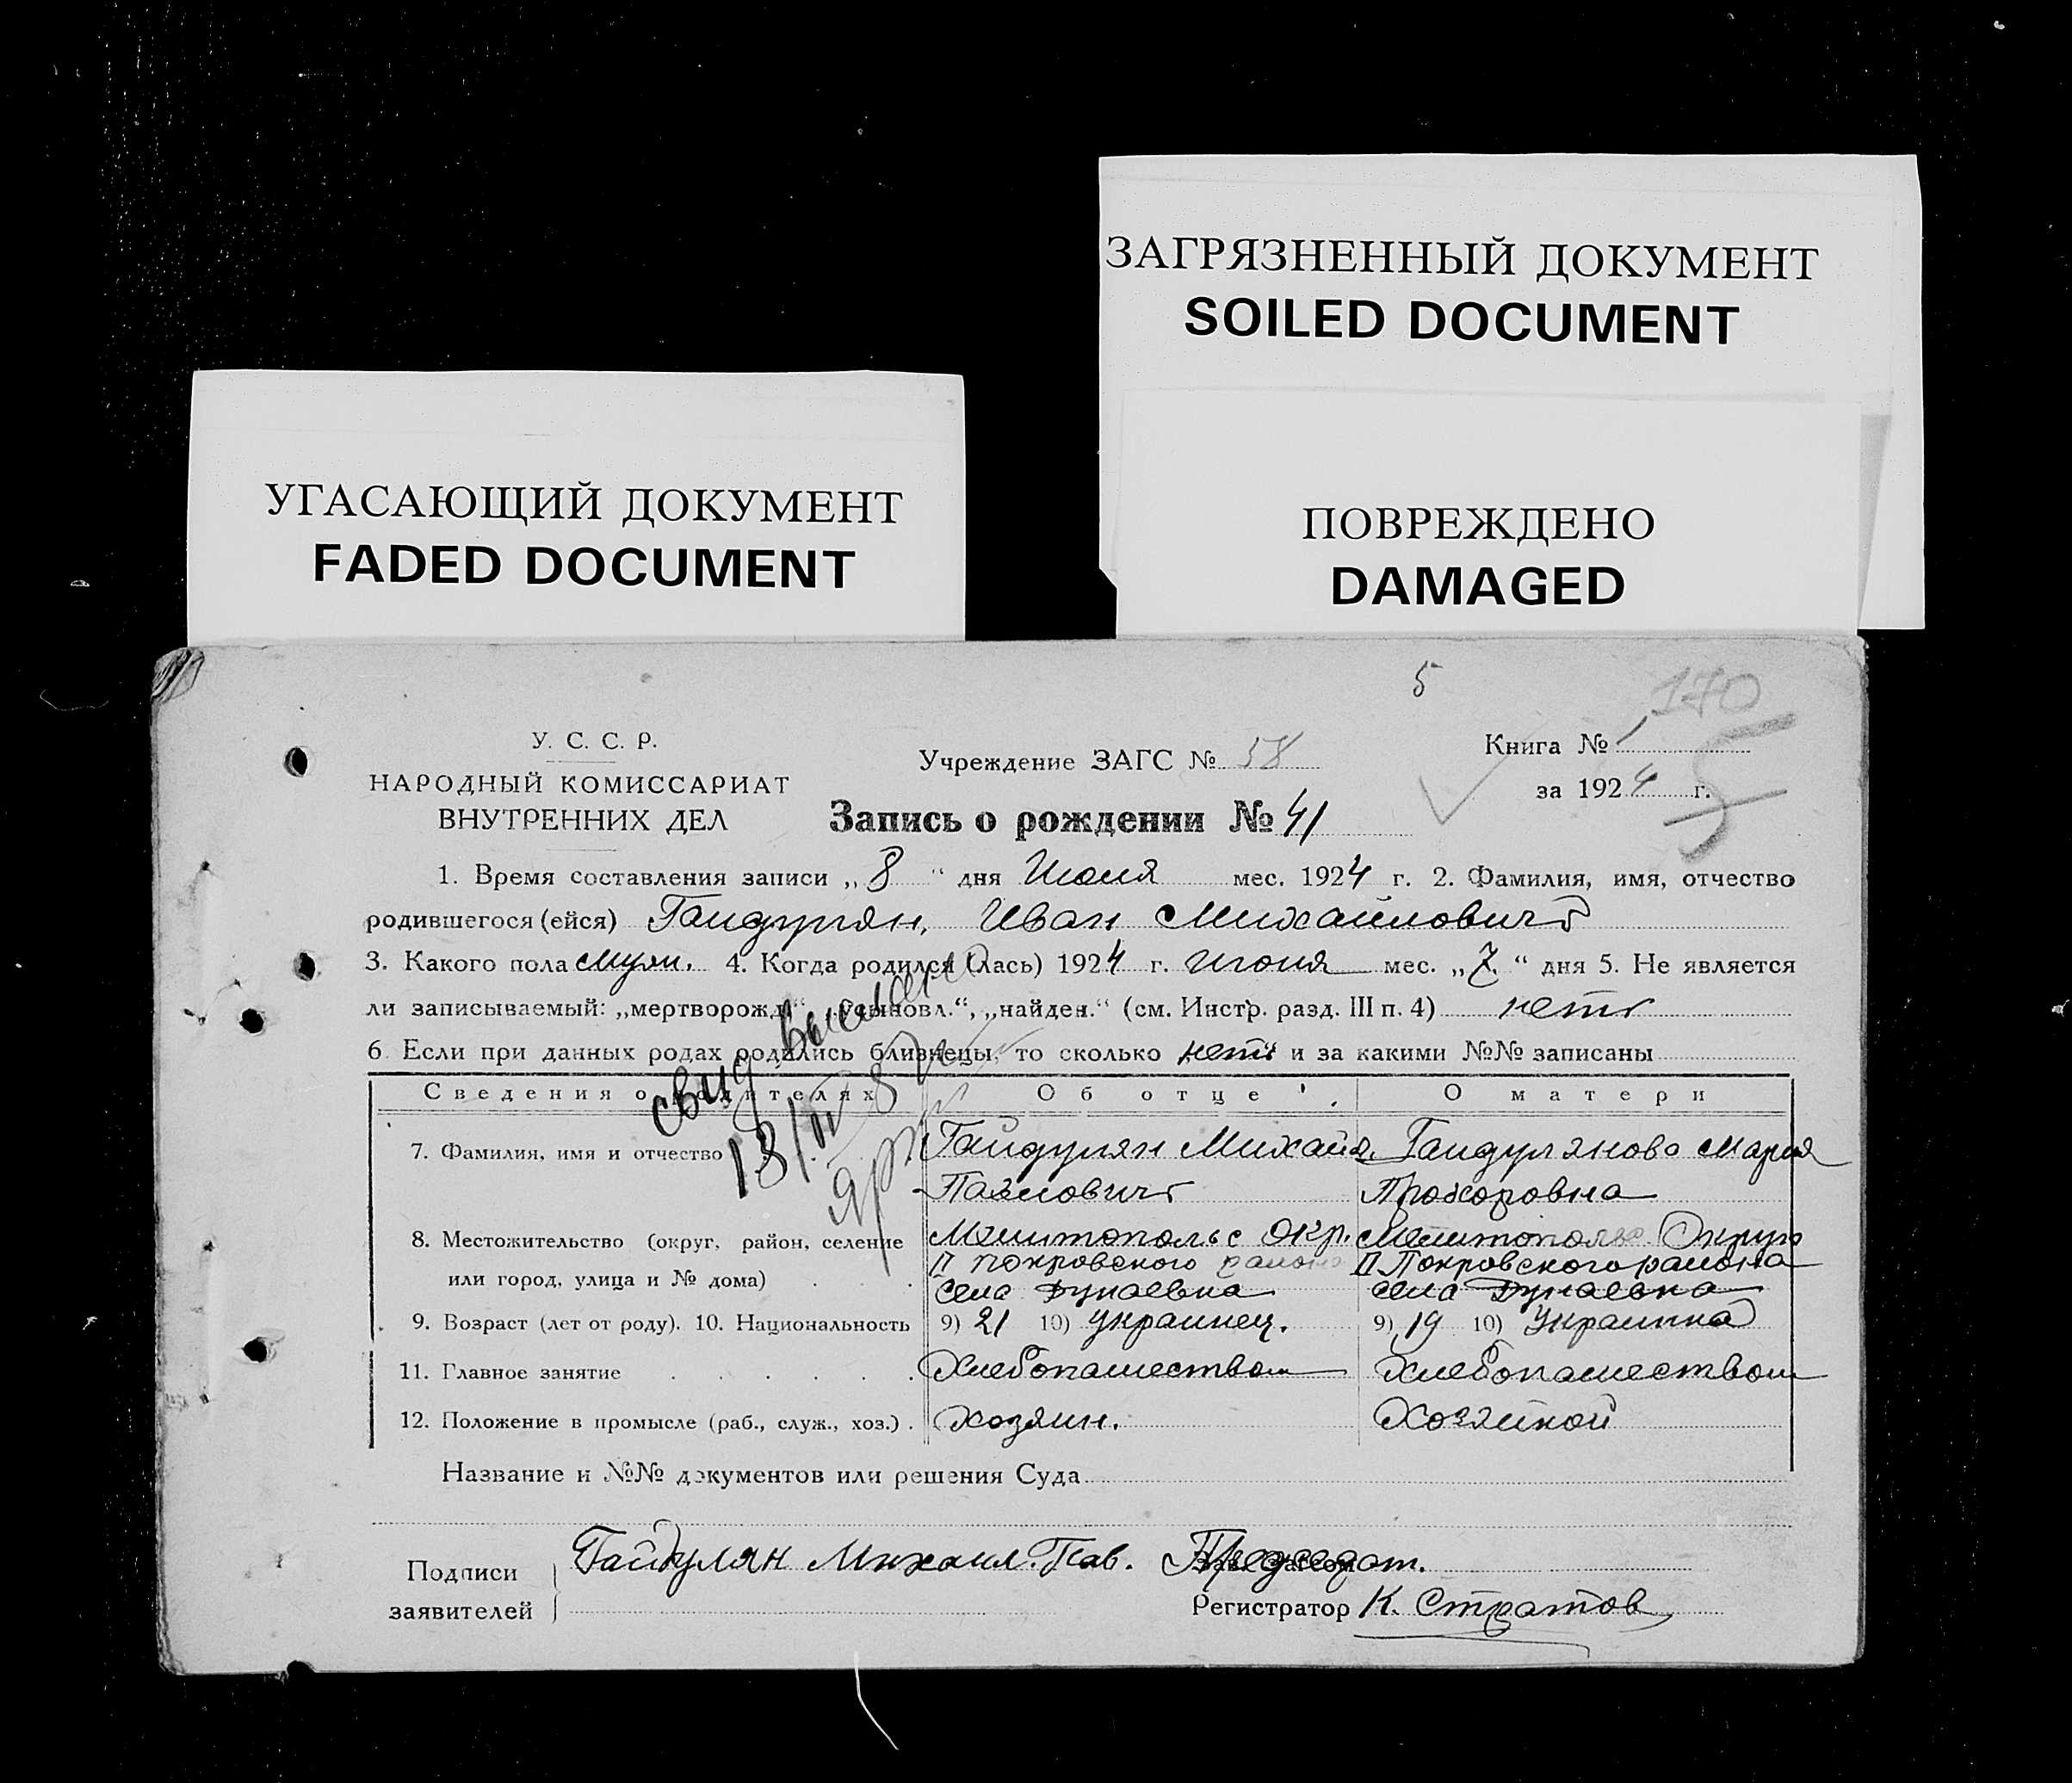 ЗАГРЯЗНЕННЫЙ ДОКУМЕНТ
SOILED DOCUMENT
УГАСАЮЩИЙ ДОКУМЕНТ
FADED DOCUMENT
ПОВРЕЖДЕНО
DAMAGED
5
170
У. С. С. Р.
НАРОДНЫЙ КОМИССАРИАТ
ВНУТРЕННИХ ДЕЛ
Учреждение ЗАГС № 58
Книга № 1
за 1924 г.
Запись о рождении № 41
1. Время составления записи „8“ дня Июля мес. 1924 г. 2. Фамилия, имя, отчество
родившегося (ейся) Гайдулян, Иван Михайловичъ
3. Какого пола муж. 4. Когда родился (лась) 1924 г. июля мес. „7.“ дня 5. Не является
ли записываемый: „мертворожд“ „усыновл.“, „найден.“ (см. Инстр. разд. III п. 4) нетъ
6 Если при данных родах родились близнецы, то сколько нетъ и за какими №№ записаны
свид
Сведения о родителях Об отце О матери
7. Фамилия, имя и отчество Гайдулян Михаил Гайдулянова Мария
Павловичъ Прохоровна
8. Местожительство (округ, район, селение Мелитопольс Окр. Мелитопольс Округа
или город, улица и № дома) II Покровского района II Покровского района
села Дунаевка села Дунаевка
9. Возраст (лет от роду). 10. Национальность 9) 21 10) Украинец. 9) 19 10) Украинка
11. Главное занятие Хлебопашеством Хлебопашеством
12. Положение в промысле (раб., служ., хоз.) Хозяин. Хозяйкой
Название и №№ документов или решения Суда
Подписи
заявителей
Гайдулян Михаил. Пав.
Зав. Загсом Председат.
Регистратор К. Стратов